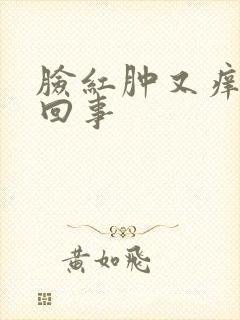 臉紅肿又痒
回事
黄如飛